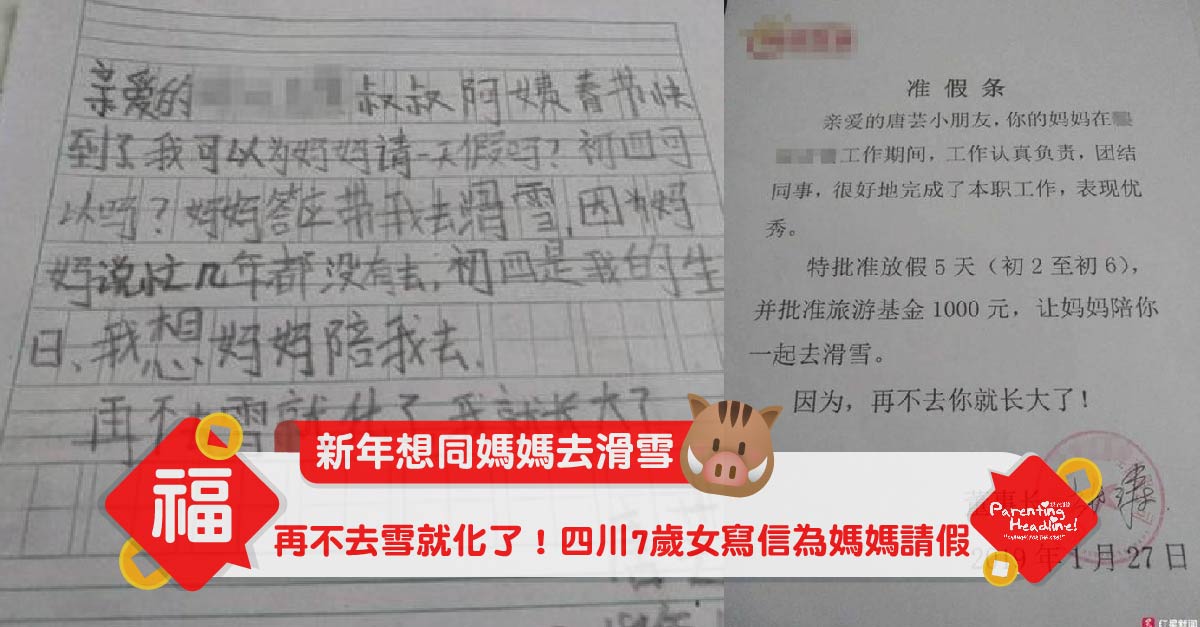 亲爱的
叔叔阿姨春节快
到了我可以为妈妈请一天假吗？初四可
以吗？妈妈答应带我去滑雪，因为妈
妈说忙几年都没有去，初四是我的生
日、我想妈妈陪我去、
再不去雪就化了 我就长大了
准假条
亲爱的唐芸小朋友，你的妈妈在
工作期间，工作认真负责，团结
同事，很好地完成了本职工作，表现优
秀。
特批准放假5天（初2至初6），
并批准旅游基金1000元，让妈妈陪你
一起去滑雪。
因为，再不去你就长大了！
年1月27日
福
新年想同媽媽去滑雪
再不去雪就化了！四川7歲女寫信為媽媽請假
Parenting
Headline!
红星新闻